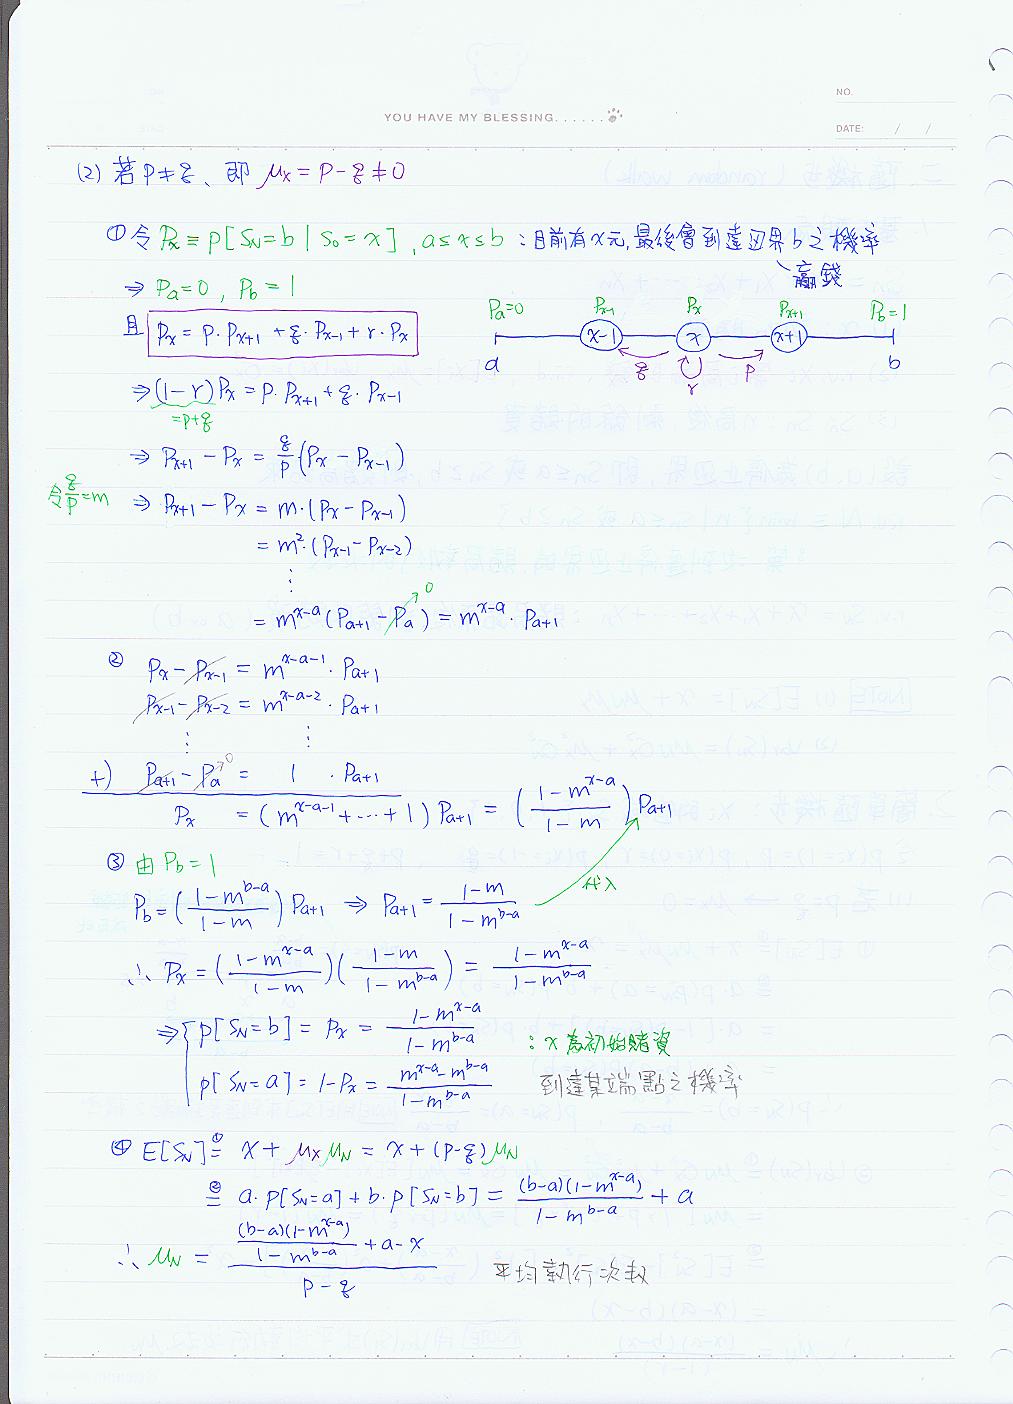 NO.
YOU HAVE MY BLESSING......
DATE: / /
(2) 若 p≠q、即 μx = p-q ≠ 0
① 令 Px ≡ p[SN=b | S0=x], a≤x≤b：目前有x元,最後會到達边界b之機率
贏錢
⇒ Pa=0, Pb=1
且 Px = p·Px+1 + q·Px-1 + r·Px
Pa=0 Px-1 Px Px+1 Pb=1
x-1 x x+1
a q r p b
⇒ (1-r)Px = p·Px+1 + q·Px-1
=p+q
⇒ Px+1 - Px = q/p (Px - Px-1)
令 q/p = m ⇒ Px+1 - Px = m·(Px - Px-1)
= m²·(Px-1 - Px-2)
⋮
= m^(x-a) (Pa+1 - Pa) = m^(x-a)·Pa+1
0
② Px - Px-1 = m^(x-a-1)·Pa+1
Px-1 - Px-2 = m^(x-a-2)·Pa+1
⋮ ⋮
+) Pa+1 - Pa = 1 · Pa+1
0
Px = (m^(x-a-1) + ⋯ + 1) Pa+1 = ((1-m^(x-a))/(1-m)) Pa+1
③ 由 Pb=1
代入
Pb = ((1-m^(b-a))/(1-m)) Pa+1 ⇒ Pa+1 = (1-m)/(1-m^(b-a))
∴ Px = ((1-m^(x-a))/(1-m)) ((1-m)/(1-m^(b-a))) = (1-m^(x-a))/(1-m^(b-a))
⇒ p[SN=b] = Px = (1-m^(x-a))/(1-m^(b-a)) ：x為初始賭資
p[SN=a] = 1-Px = (m^(x-a)-m^(b-a))/(1-m^(b-a)) 到達某端點之機率
④ E[SN] ①= x + μxμN = x + (p-q)μN
②= a·p[SN=a] + b·p[SN=b] = (b-a)(1-m^(x-a))/(1-m^(b-a)) + a
∴ μN = ((b-a)(1-m^(x-a))/(1-m^(b-a)) + a-x)/(p-q) 平均執行次數